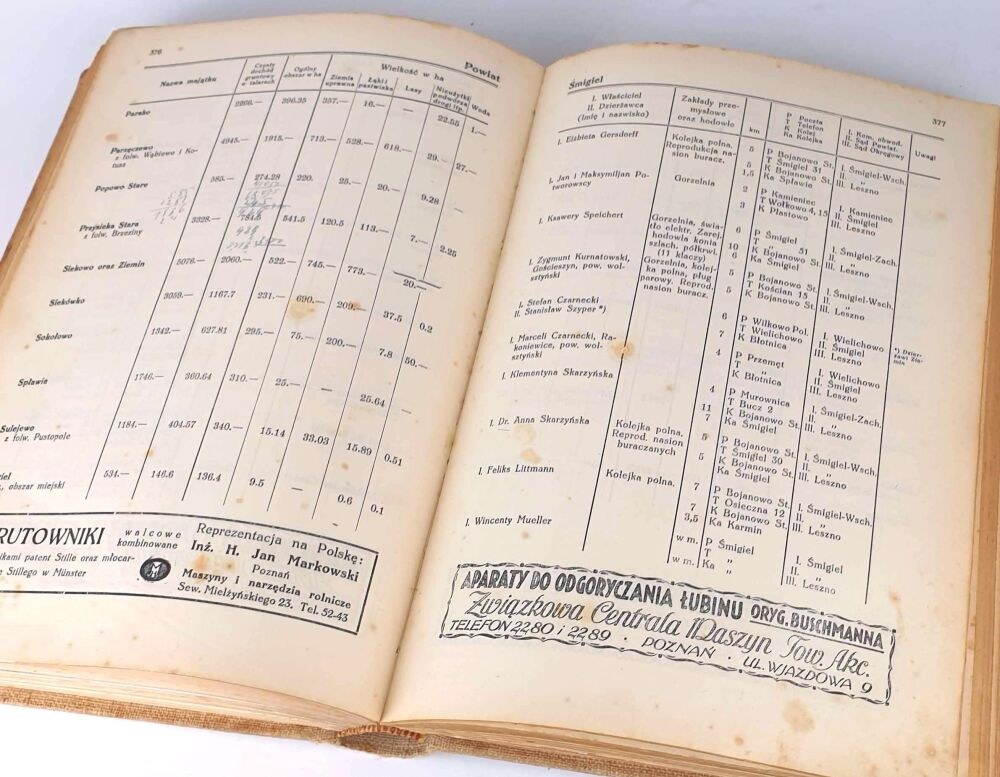 376
Powiat
Nazwa majątku
Czysty dochód gruntowy w talarach
Ogólny obszar w ha
Wielkość w ha
Ziemia uprawna
Łąki i pastwiska
Lasy
Nieużytki podwórza drogi itp.
Woda
Parsko
2266.— 396.35 357.— 16.— — 22.55 1.—
Parzęczewo
z folw. Wąbiewo i Kotusz
4945.— 1915.— 713.— 528.— 618.— 29.— 27.—
Popowo Stare
585.— 274.28 220. 25.— 20.— 9.28 —
Przysieka Stara
z folw. Brzeziny
3328.— 784.5 541.5 120.5 113.— 7.— 2.25
Siekowo oraz Ziemin
5076.— 2060.— 522.— 745.— 773.— 20.—
Siekówko
3059.— 1167.7 231.— 690.— 209.— 37.5 0.2
Sokołowo
1342.— 627.81 295.— 75.— 200.— 7.8 50.—
Spławie
1746.— 360.64 310.— 25.— — 25.64 —
Sulejewo
z folw. Pustopole
1184.— 404.57 340.— 15.14 33.03 15.89 0.51
obszar miejski
534.— 146.6 136.4 9.5 — 0.6 0.1
RUTOWNIKI walcowe kombinowane
patent Stille oraz młocar-
Stillego w Münster
Reprezentacja na Polskę:
Inż. H. Jan Markowski
Poznań
Maszyny i narzędzia rolnicze
Sew. Mielżyńskiego 23, Tel. 52-43
Śmigiel
377
I. Właściciel
II. Dzierżawca
(Imię i nazwisko)
Zakłady przemysłowe oraz hodowle
km
P Poczta
T Telefon
K Kolej
Ka Kolejka
I. Kom. obwod.
II. Sąd Powiat.
III. Sąd Okręgowy
Uwagi
I. Elżbieta Gersdorff
Kolejka polna, Reprodukcja nasion buracz.
5 P Bojanowo St.
T Śmigiel 31
5 K Bojanowo St.
1,5 Ka Spławia
I. Śmigiel-Wsch.
II. „
III. Leszno
I. Jan i Maksymiljan Potworowscy
Gorzelnia
2 P Kamieniec
T Wolkowo 4, 15
3 K Plastowo
I. Kamieniec
II. Śmigiel
III. Leszno
I. Ksawery Speichert
Gorzelnia, światło elektr, Zarej. hodowla konia szlach. półkrwi. (11 klaczy)
6 P Śmigiel
T „ 51
10 K Bojanowo St.
6 Ka Śmigiel
I. Śmigiel-Zach.
II. „
III. Leszno
I. Zygmunt Kurnatowski, Gościeszyn, pow. wolsztyński
Gorzelnia, kolejka polna, pług parowy. Reprod. nasion buracz.
5 P Bojanowo St.
T Kościan 15
5 K Bojanowo St.
I. Śmigiel-Wsch.
II. „
III. Leszno
I. Stefan Czarnecki
II. Stanisław Szyper *)
6 P Wilkowo Pol.
T Wielichowo
7 K Błotnica
I. Wielichowo
II. Śmigiel
III. Leszno
*) Dzierżawi Ziemin
I. Marceli Czarnecki, Rakoniewice, pow. wolsztyński
4 P Przemęt
T „
K Błotnica
I. Wielichowo
II. Śmigiel
III. Leszno
I. Klementyna Skarzyńska
4 P Murownica
T Bucz 2
11 K Bojanowo St.
7 Ka Śmigiel
I. Śmigiel-Zach.
II. „
III. Leszno
I. Dr. Anna Skarzyńska
Kolejka polna, Reprod. nasion buraczanych
5 P Bojanowo St.
T Śmigiel 30
5 K Bojanowo St.
Ka Śmigiel
I. Śmigiel-Wsch.
II. „
III. Leszno
I. Feliks Littmann
Kolejka polna,
7 P Bojanowo St.
T Osieczna 12
7 K Bojanowo St.
3,5 Ka Karmin
I. Śmigiel-Wsch.
II. „
III. Leszno
I. Wincenty Mueller
w m. P Śmigiel
T „
w m. Ka „
I. Śmigiel
II. „
III. Leszno
APARATY DO ODGORYCZANIA ŁUBINU ORYG. BUSCHMANNA
Związkowa Centrala Maszyn Tow. Akc.
TELEFON 2280 i 2289 · POZNAŃ · UL. WJAZDOWA 9